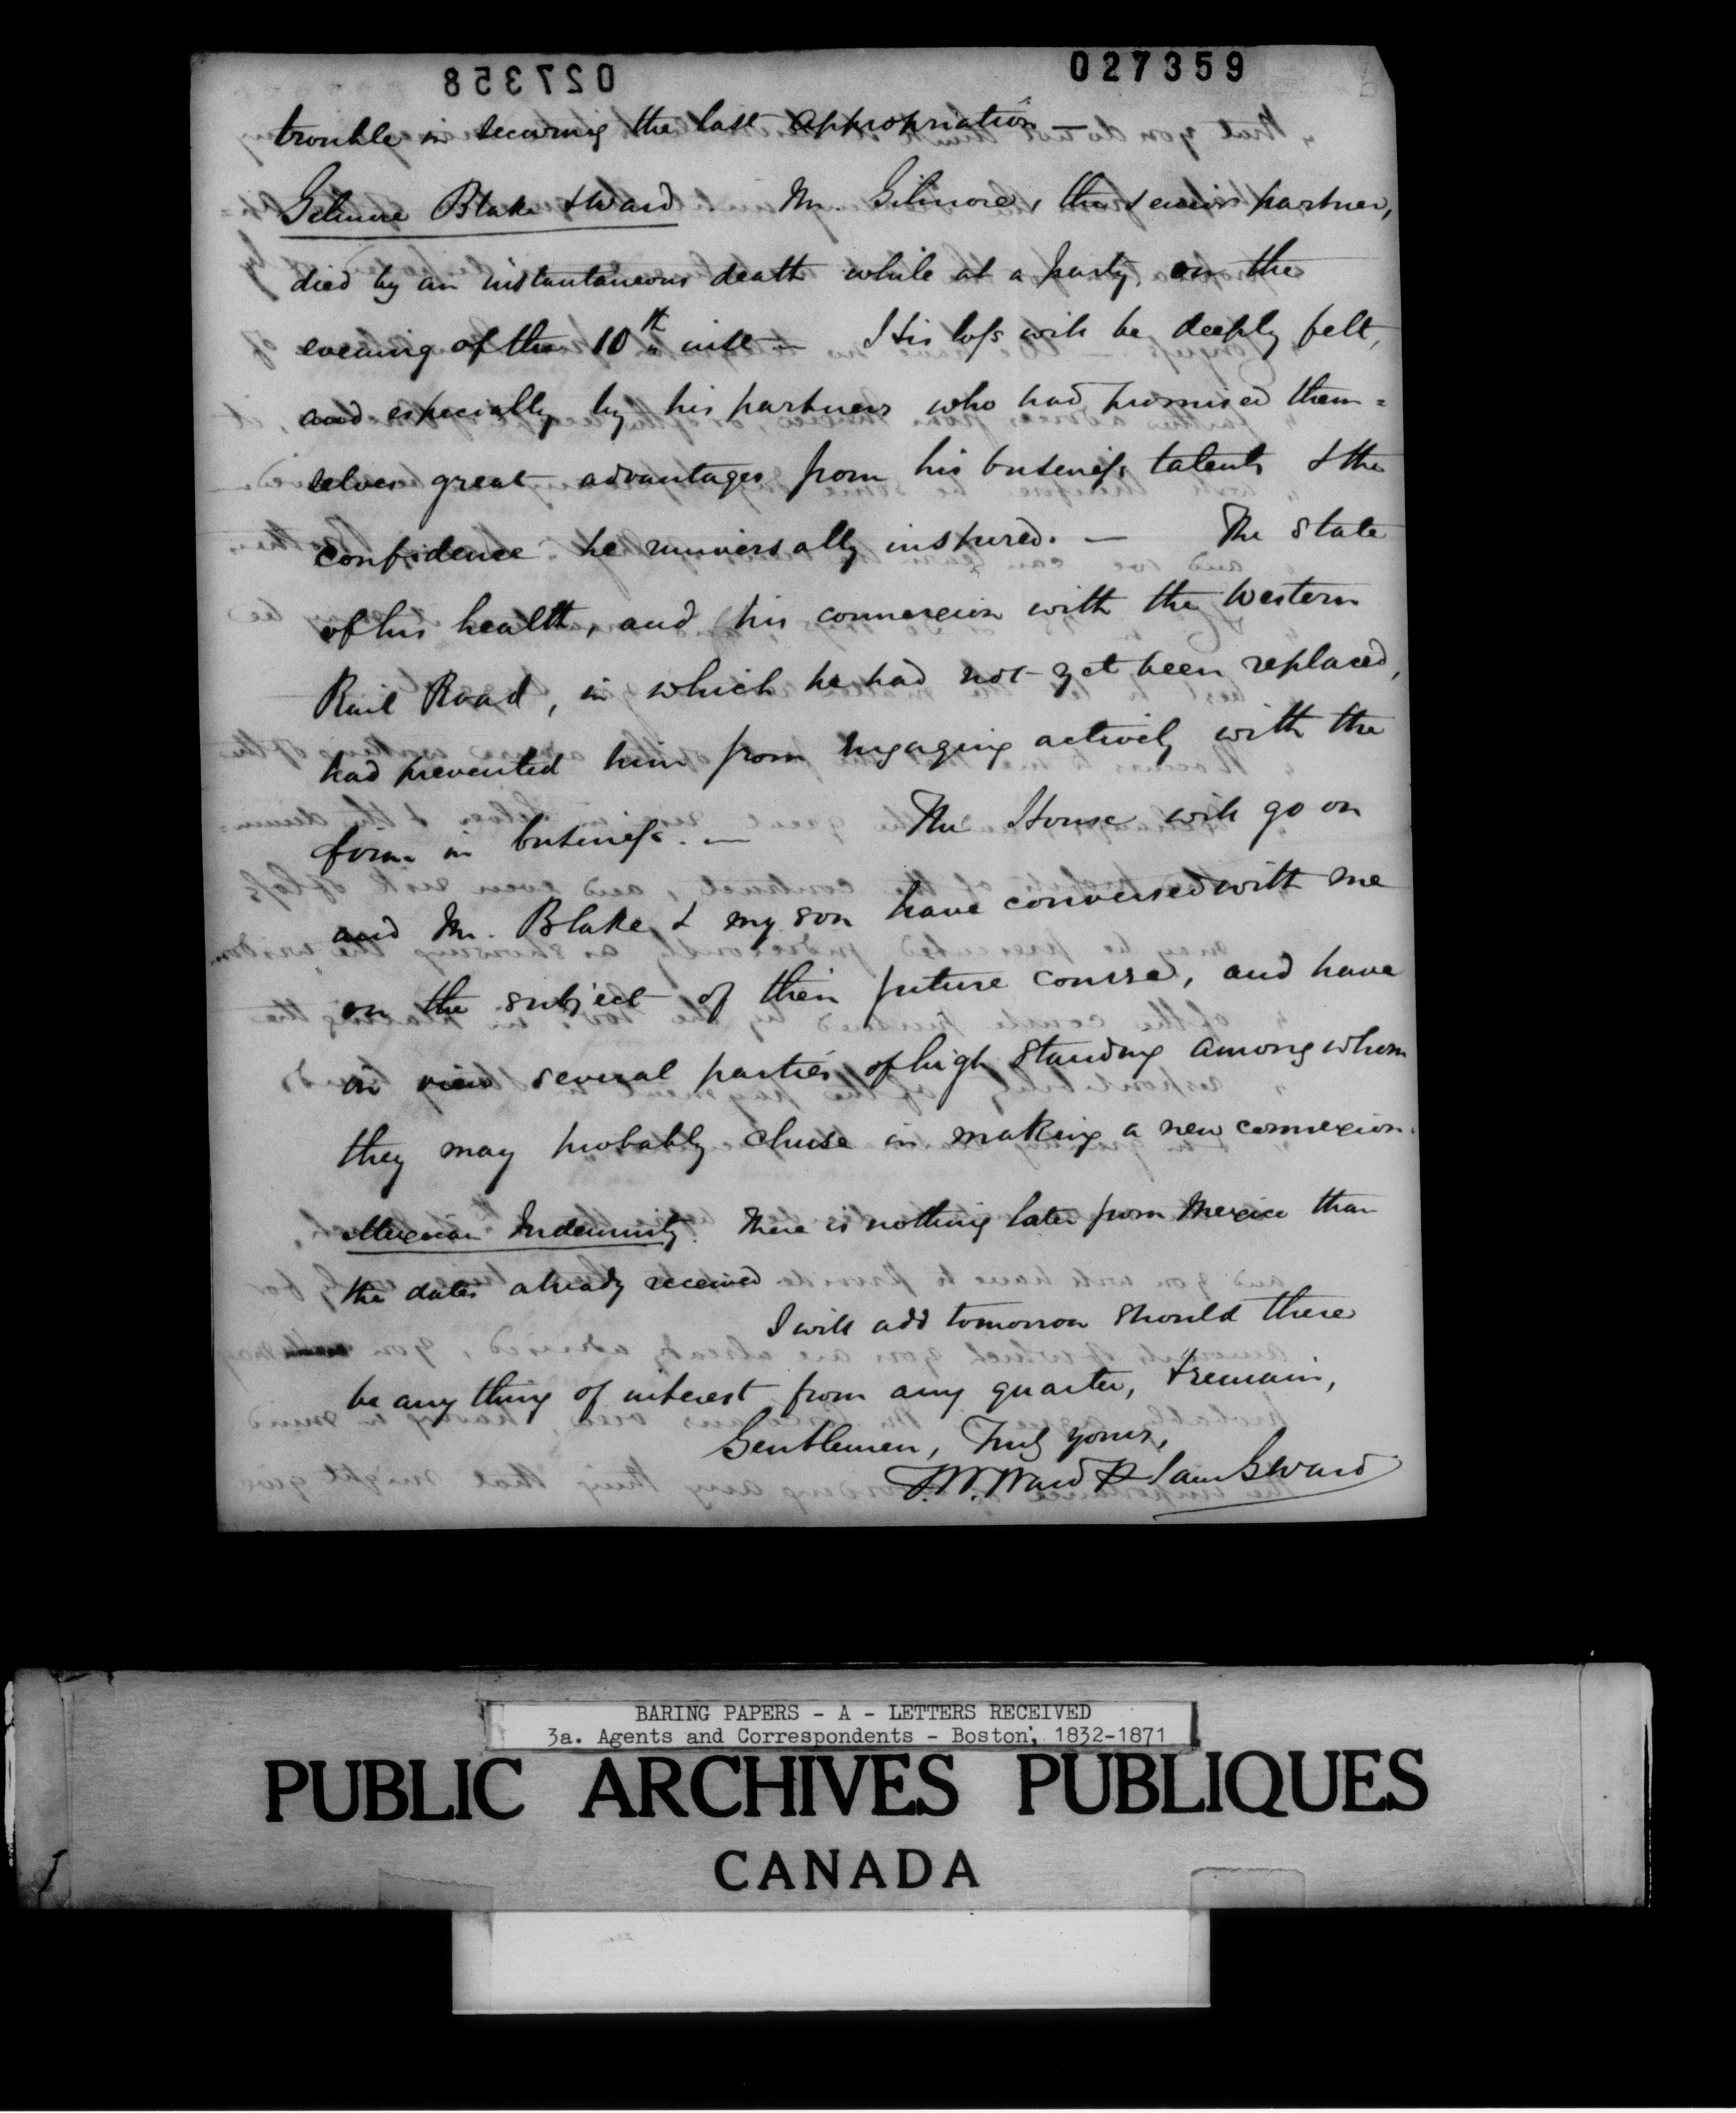 027358
027359
trouble in securing the last appropriation —
Gilmore Blake & Ward. Mr. Gilmore, the senior partner,
died by an instantaneous death while at a party, on the
evening of the 10th inst — His loss will be deeply felt,
and especially by his partners who had promised them=
selves great advantages from his business talents & the
confidence he universally inspired. — The state
of his health, and his connexion with the Western
Rail Road, in which he had not yet been replaced,
had prevented him from engaging actively with the
firm in business. — The House will go on
and Mr. Blake & my son have conversed with me
on the subject of their future course, and have
in view several parties of high standing among whom
they may probably chuse in making a new connexion.
Mexican Indemnity. There is nothing later from Mexico than
the dates already received
I will add tomorrow should there
be any thing of interest from any quarter, & remain,
Gentlemen, Truly yours,
T. W. Ward P Sam G Ward
BARING PAPERS - A - LETTERS RECEIVED
3a. Agents and Correspondents - Boston, 1832-1871
PUBLIC ARCHIVES PUBLIQUES
CANADA